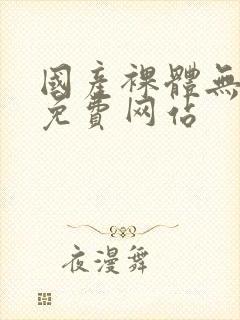 國產裸體無
免費网佔
夜漫舞